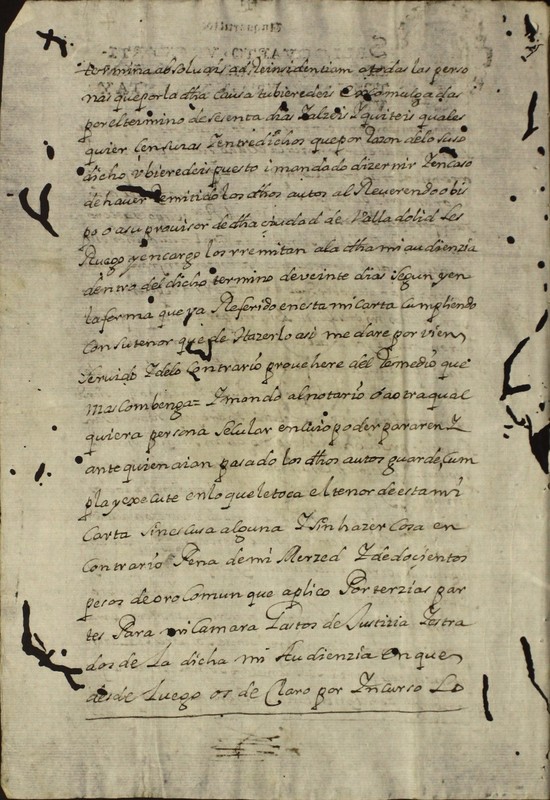 termina absoluais ad Reinsidentiam a todas las perso
nas que por la dha Causa tubieredeis Excomulgadas
por el termino de sesenta dias Zalzeis I quiteis quales
quier Censuras Zentredichos que por Razon de lo suso
dicho ubieredeis puesto i mandado dizernir Zencaso
de haver Remitido los dhos autos al Reverendo obis
po o a su provisor de dha ciudad de Valladolid Les
Ruego yencargo los rremitan a la dha mi audienzia
dentro del dicho termino de veinte dias segun y en
la forma que ya Referido en esta mi Carta Cumpliendo
Con su tenor que de Hazerlo asi me dare por vien
servido Z delo Contrario provehere del Remedio que
mas Combenga= Z mando al notario ó ao traqual
quiera persona secular en cuio poder pararen Z
ante quien aian pasado los dhos autos guarde Cum
pla y execute en lo que le toca el tenor de esta mi
Carta sin escusa alguna Z sin hazer Cosa en
Contrario Pena de mi Merzed Z de docientos
pesos de oro Comun que aplico Por terzias par
tes Para mi Camara Gastos de Justizia Zestra
dos de La dicha mi Audienzia en que
desde Luego os de Claro por Incurso Lo